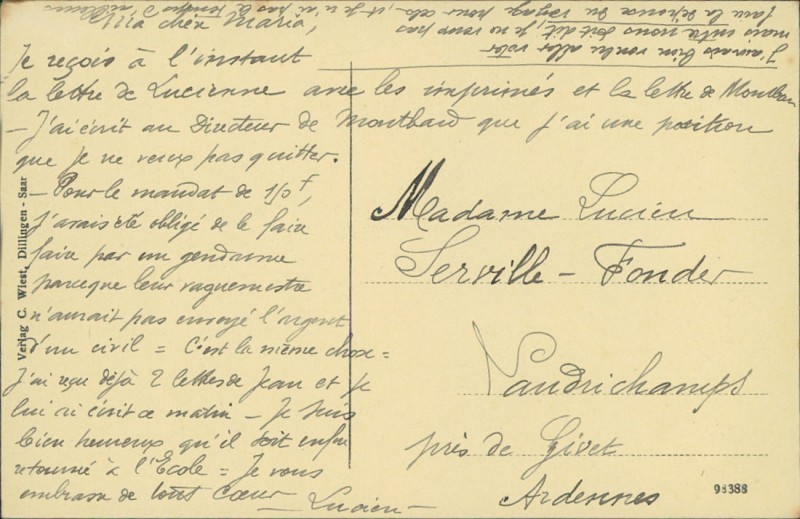 Ma chère Maria,
Je reçois à l'instant
la lettre de Lucienne avec les imprimés et la lettre de Montbard
— J'ai écrit au Directeur de Montbard que j'ai une position
que je ne veux pas quitter.
— Pour le mandat de 150 f,
j'avais été obligé de le faire
faire par un gendarme
parceque leur vaguemestre
n'aurait pas envoyé l'argent
d'un civil = C'est la même chose =
J'ai reçu déjà 2 lettres de Jean et je
lui ai écrit ce matin — Je suis
bien heureux qu'il soit enfin
retourné à l'École = Je vous
embrasse de tout cœur — Lucien —
J'aurais bien voulu aller voter
mais entre nous soit dit, je ne veux pas
faire la dépense du voyage pour cela, et je n'ai pas le temps d'ailleurs
Madame Lucien
Serville – Fonder
Vaudrichamps
près de Givet
Ardennes
98388
Verlag C. Wiest, Dillingen - Saar